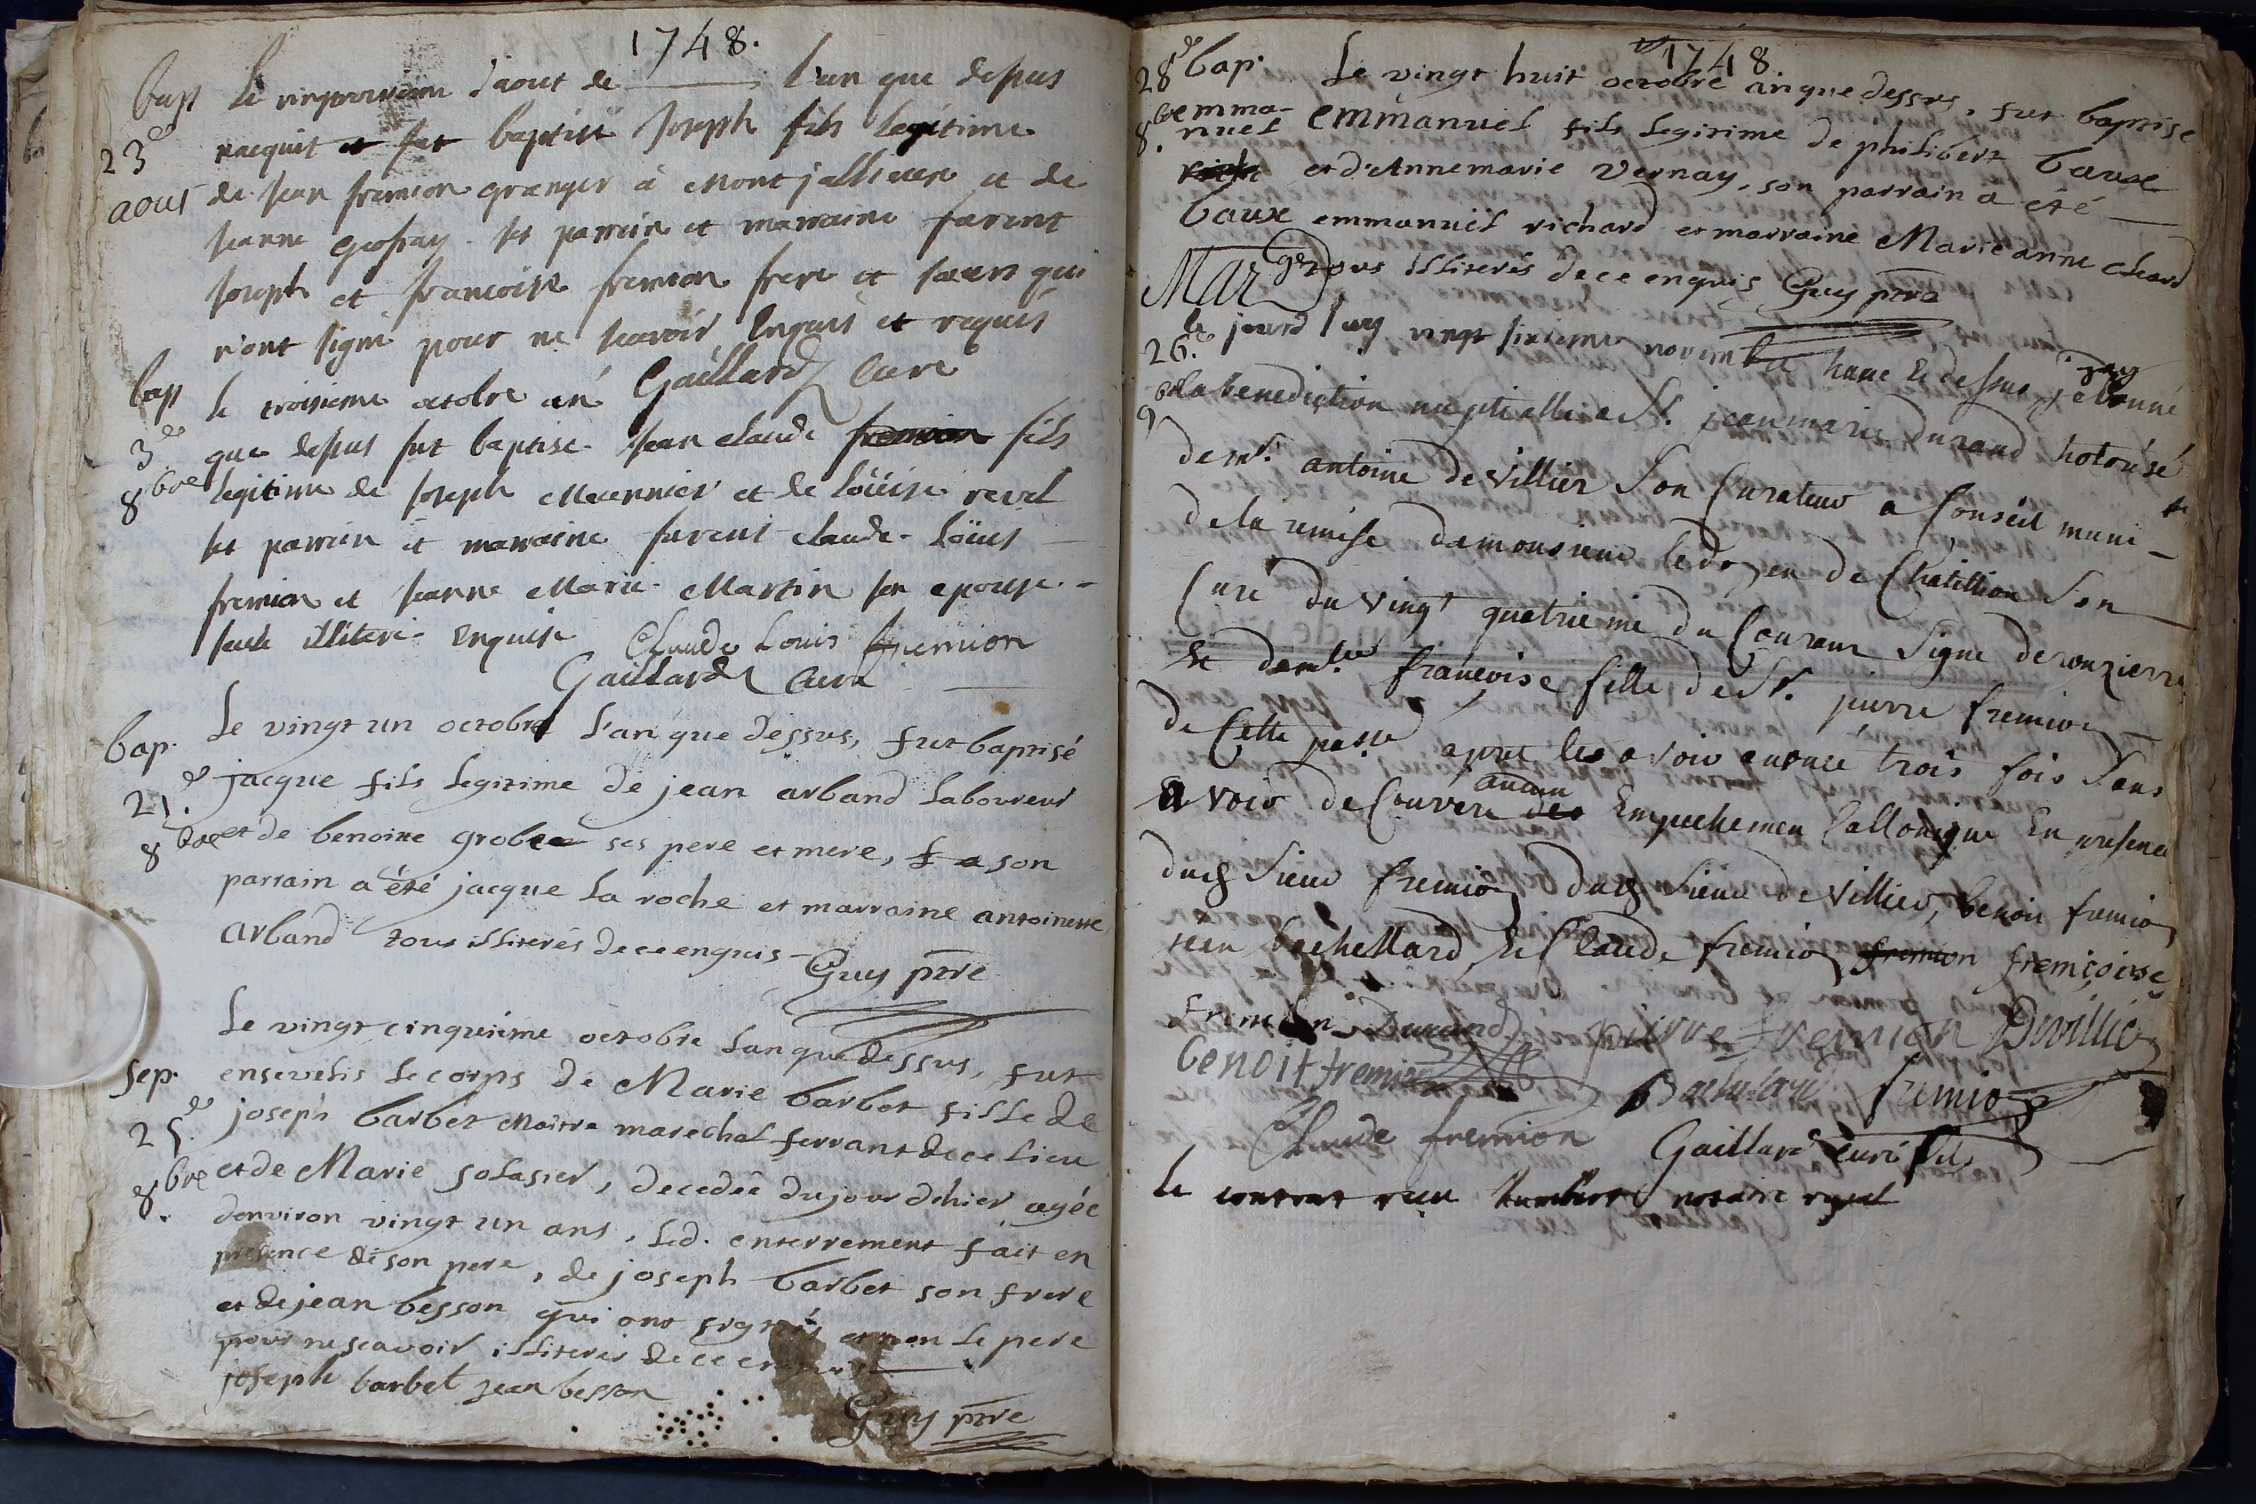 1748.
bap Le vingt troisieme d'aout de ——— l'an que dessus
23e nacquit et fut baptisé Joseph fils legitime
aout de Jean fremion granger à Mont jallieu et de
Jeanne Geofray. Ses parrein et marraine furent
Joseph et francoise fremion frere et soeur qui
n'ont signé pour ne scavoir Enquis et requis
Gaillard Curé
bap le troisieme octobre an
3e que dessus fut baptisé Jean claude fremion fils
8bre legitime de Joseph Meunnier et de Loüise revel
ses parrein et marraine furent claude Loüis
fremion et Jeanne Marie Martin son epouse
seule illiteré enquise Claude Louis fremion
Gaillard Curé
bap. Le vingt un octobre l'an que dessus, fut baptisé
21.e jacque fils legitime de jean arband Laboureur
8bre et de benoite grobe ses pere et mere, son
parrain a été jacque La roche et marraine antoinette
arband tous illiterés de ce enquis
Guy ptre
Le vingt cinquiéme octobre l'an que dessus, fut
sep. ensevelis le corps de Marie barbet fille de
25.e joseph barbet Maitre marechal ferrant de ce lieu
8bre. et de Marie solasier, decedée du jour d'hier agée
d'environ vingt un ans, led. enterrement fait en
presence de son pere, de joseph barbet son frere
et de jean besson qui ont signés et non le pere
pour ne scavoir illiteré de ce enquis
joseph barbet jean besson
Guy ptre
1748.
28e bap. Le vingt huit octobre an que dessus, fut baptisé
8bre. emmanuel emmanuel fils legitime de philibert baux
et d'Anne marie Vernay, son parrain a été
baux emmanuel richard et marraine Marie anne chard
tous illiterés de ce enquis Guy ptre
Marge
26.e le jourd huy vingt sixieme novembre hané de dessus j'ay donné
9bre la benediction nuptielle a Sr. jean marie durand hotorisé
de mr. antoine de villier son Curateur a Conseil muni
de la remise de monsieur le doyen de Chatillion son
Curé du vingt quatrieme du Courant signe derouzierre
et demlle francoise fille de Sr. pierre fremion
de Cette passe apret les avoir anoncé trois fois sans
avoir decouvert des aucun Empechemen Callonique En presence
dud Sieur fremion dud Sieur de villier, benoit fremion
bachellard et Claude fremion fremion francoise
fremion Durand pierre fremion Devillier
benoit fremion Bachelard fremion
Claude fremion Gaillard Curé
le contrat receu Humbert notaire royal